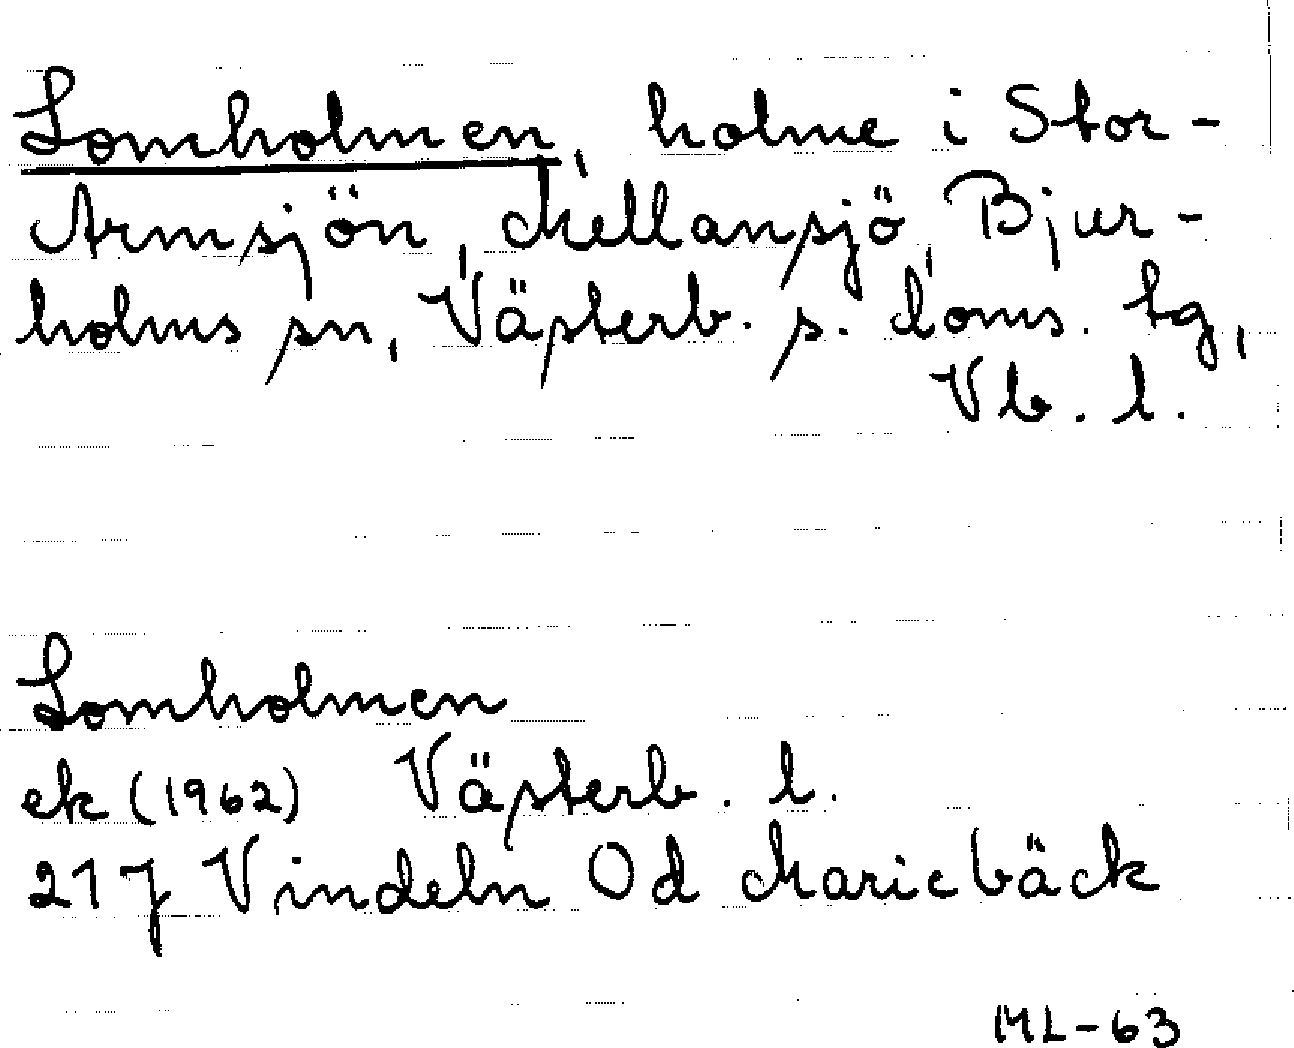 Lomholmen, holme i Stor-
Armsjön, Mellansjö, Bjur-
holms sn, Västerb. s. doms. tg,
Vb. l.
Lomholmen
ek (1962) Västerb. l.
21J Vindeln 0d Mariebäck
ML-63